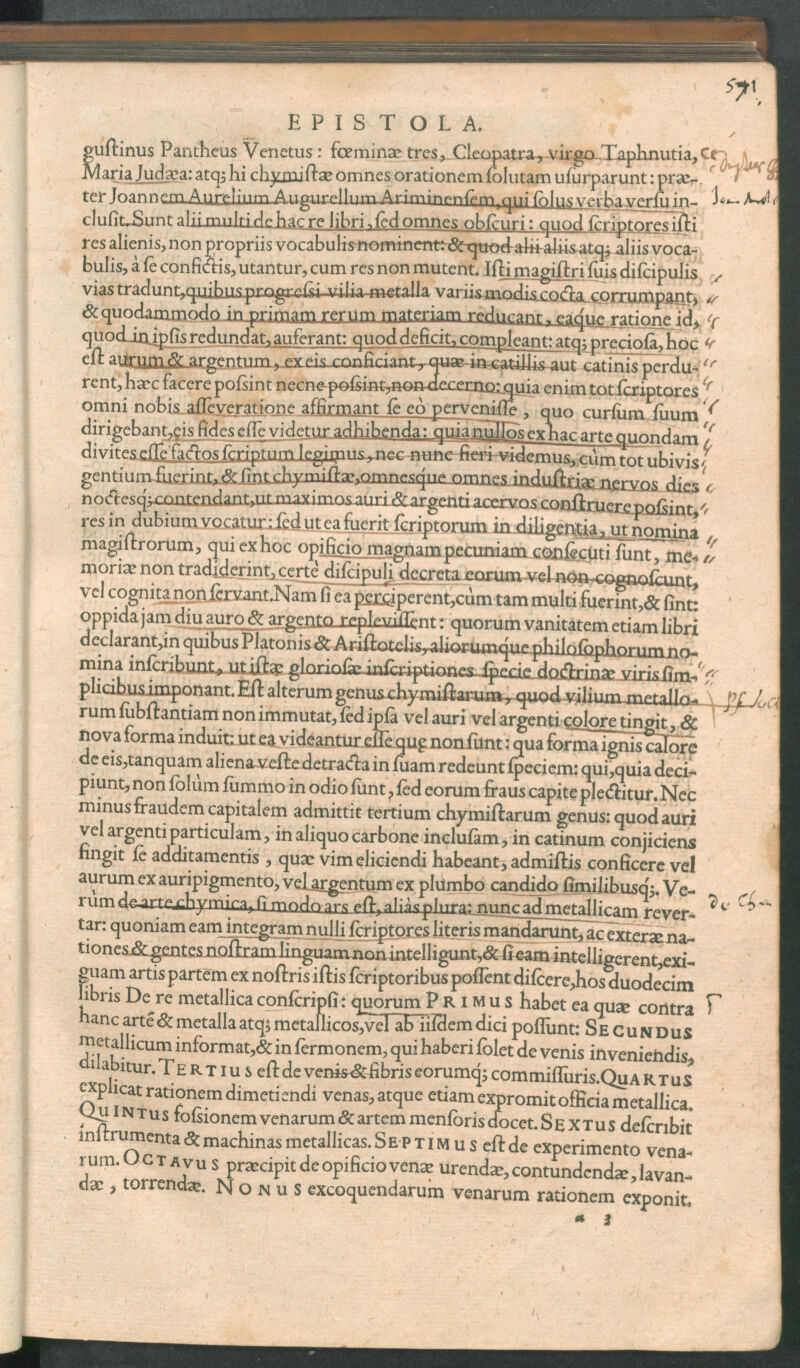 571
EPISTOLA.
guſtinus Pantheus Venetus: fœminæ tres, Cleopatra, virgo Taphnutia,
Maria Judæa: atq; hi chymiſtæ omnes orationem ſolutam uſurparunt: præ-
ter Joannem Aurelium Augurellum Ariminenſem, qui ſolus verba verſu in-
cluſit. Sunt alii multi de hac re libri, ſed omnes obſcuri: quod ſcriptores iſti
res alienis, non propriis vocabulis nominent: & quod alii aliis atq; aliis voca-
bulis, à ſe confictis, utantur, cum res non mutent. Iſti magiſtri ſuis diſcipulis
vias tradunt, quibus progreſsi vilia metalla variis modis cocta corrumpant,
& quodammodo in primam rerum materiam reducant, eaque ratione id,
quod in ipſis redundat, auferant: quod deficit, compleant: atq; precioſa, hoc
eſt aurum & argentum, ex eis conficiant, quæ in catillis aut catinis perdu-
rent, hæc facere poſsint necne poſsint, non decerno: quia enim tot ſcriptores
omni nobis aſſeveratione affirmant ſe eò perveniſſe, quo curſum ſuum
dirigebant, eis fides eſſe videtur adhibenda: quia nullos ex hac arte quondam
divites eſſe factos ſcriptum legimus, nec nunc fieri videmus, cùm tot ubivis
gentium fuerint, & ſint chymiſtæ, omnesque omnes induſtriæ nervos dies
noctesq; contendant, ut maximos auri & argenti acervos conſtruere poſsint,
res in dubium vocatur: ſed ut ea fuerit ſcriptorum in diligentia, ut nomina
magiſtrorum, qui ex hoc opificio magnam pecuniam conſecuti ſunt, me-
moriæ non tradiderint, certè diſcipuli decreta eorum vel non cognoſcunt,
vel cognita non ſervant. Nam ſi ea perciperent, cùm tam multi fuerint, & ſint:
oppida jam diu auro & argento repleviſſent: quorum vanitatem etiam libri
declarant, in quibus Platonis & Ariſtotelis, aliorumque philoſophorum no-
mina inſcribunt, ut iſtæ glorioſæ inſcriptiones ſpecie doctrinæ viris ſim-
plicibus imponant. Eſt alterum genus chymiſtarum, quod vilium metallo-
rum ſubſtantiam non immutat, ſed ipſa vel auri vel argenti colore tingit, &
nova forma induit: ut ea videantur eſſe quę non ſunt: qua forma ignis calore
de eis, tanquam aliena veſte detracta in ſuam redeunt ſpeciem: qui, quia deci-
piunt, non ſolùm ſummo in odio ſunt, ſed eorum fraus capite plectitur. Nec
minus fraudem capitalem admittit tertium chymiſtarum genus: quod auri
vel argenti particulam, in aliquo carbone incluſam, in catinum conjiciens
fingit ſe additamentis, quæ vim eliciendi habeant, admiſtis conficere vel
aurum ex auripigmento, vel argentum ex plumbo candido ſimilibusq;. Ve-
rùm de arte chymica, ſi modo ars eſt, aliàs plura: nunc ad metallicam rever-
tar: quoniam eam integram nulli ſcriptores literis mandarunt, ac exteræ na-
tiones & gentes noſtram linguam non intelligunt, & ſi eam intelligerent, exi-
guam artis partem ex noſtris iſtis ſcriptoribus poſſent diſcere, hos duodecim
libris De re metallica conſcripſi: quorum PRIMUS habet ea quæ contra
hanc artē & metalla atq; metallicos, vel ab iiſdem dici poſſunt: SECUNDUS
metallicum informat, & in ſermonem, qui haberi ſolet de venis inveniendis,
dilabitur. TERTIUS eſt de venis & fibris eorumq; commiſſuris. QUARTUS
explicat rationem dimetiendi venas, atque etiam expromit officia metallica.
QUINTUS foſsionem venarum & artem menſoris docet. SEXTUS deſcribit
inſtrumenta & machinas metallicas. SEPTIMUS eſt de experimento vena-
rum. OCTAVUS præcipit de opificio venæ urendæ, contundendæ, lavan-
dæ, torrendæ. NONUS excoquendarum venarum rationem exponit.
a 3